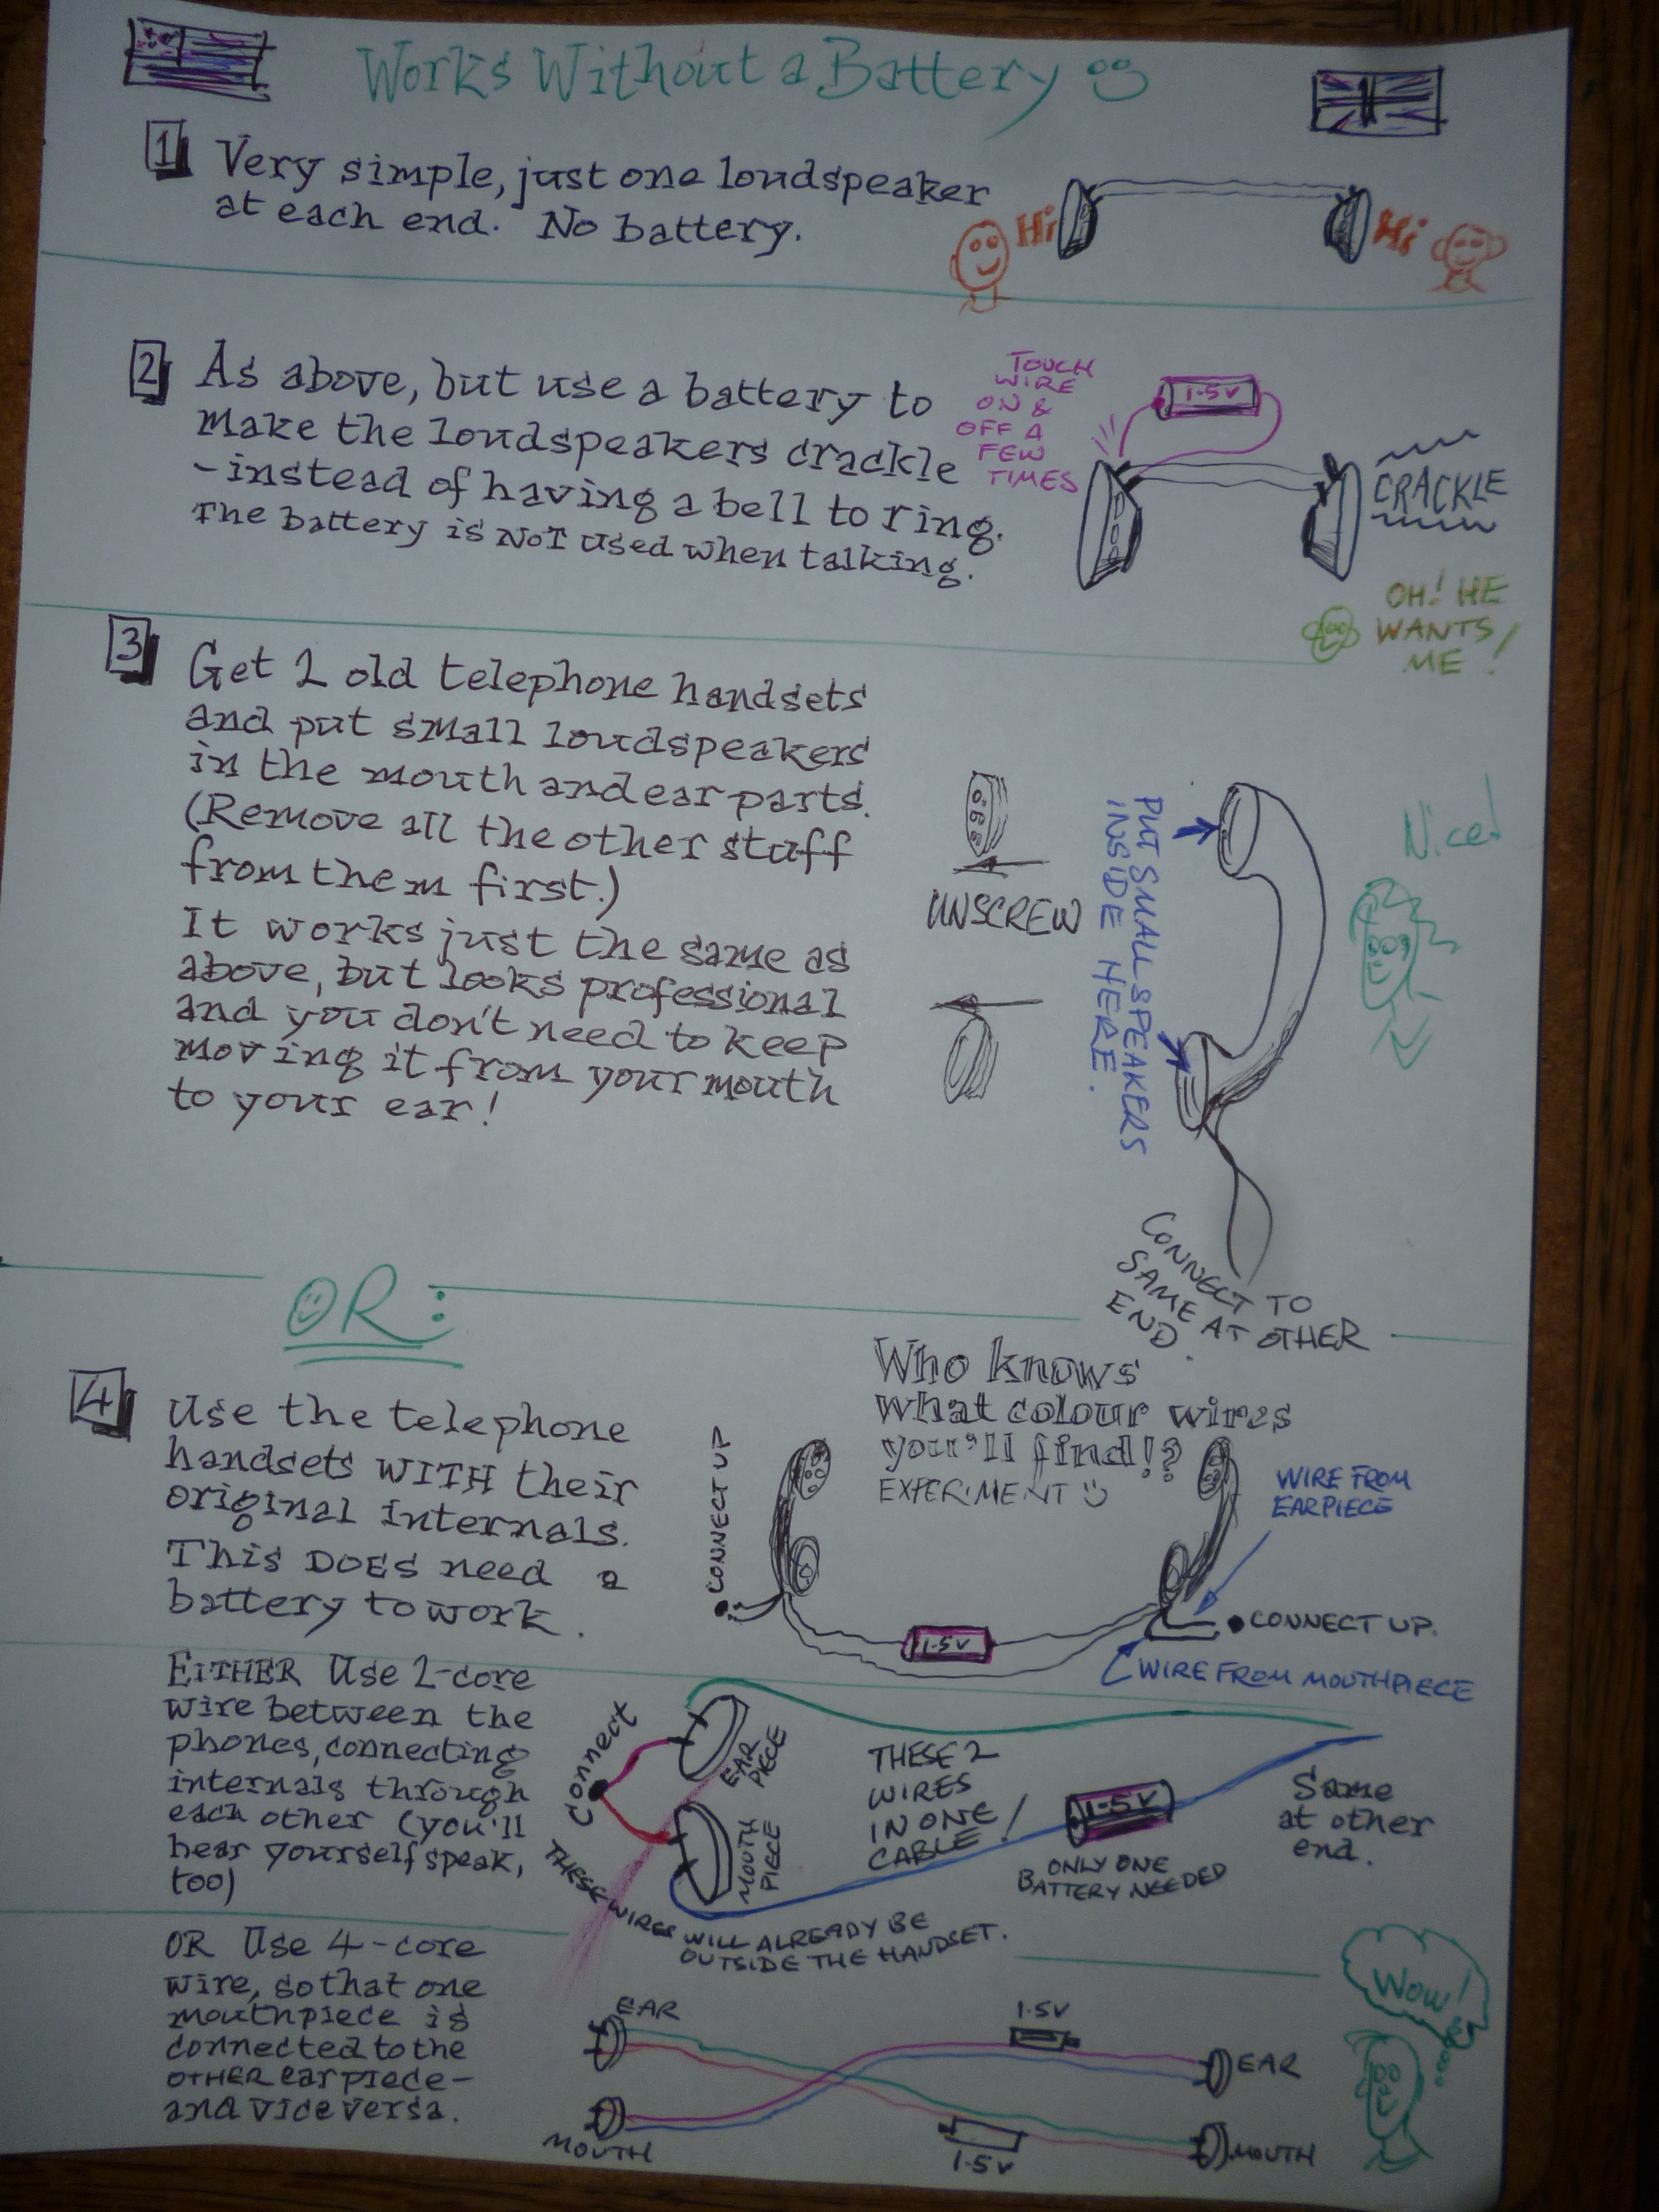 Works Without a Battery
1 Very simple, just one loudspeaker
at each end. No battery.
Hi
Hi
2 As above, but use a battery to
make the loudspeakers crackle
- instead of having a bell to ring.
The battery is NOT used when talking.
TOUCH
WIRE
ON &
OFF A
FEW
TIMES
1.5V
CRACKLE
OH! HE
WANTS
ME!
3 Get 2 old telephone handsets
and put small loudspeakers
in the mouth and ear parts.
(Remove all the other stuff
from them first.)
It works just the same as
above, but looks professional
and you don't need to keep
moving it from your mouth
to your ear!
UNSCREW
PUT SMALL SPEAKERS
INSIDE HERE.
Nice!
CONNECT TO
SAME AT OTHER
END.
OR:
4 Use the telephone
handsets WITH their
original internals.
This DOES need a
battery to work.
Who knows
what colour wires
you'll find!?
EXPERIMENT
CONNECT UP
1.5V
WIRE FROM
EARPIECE
CONNECT UP.
WIRE FROM MOUTHPIECE
EITHER Use 2-core
wire between the
phones, connecting
internals through
each other (you'll
hear yourself speak,
too)
Connect
EAR
PIECE
MOUTH
PIECE
THESE 2
WIRES
IN ONE
CABLE!
1.5V
ONLY ONE
BATTERY NEEDED
Same
at other
end.
THESE WIRES WILL ALREADY BE
OUTSIDE THE HANDSET.
OR Use 4-core
wire, so that one
mouthpiece is
connected to the
OTHER earpiece-
and vice versa.
EAR
MOUTH
1.5V
1.5V
EAR
MOUTH
Wow!